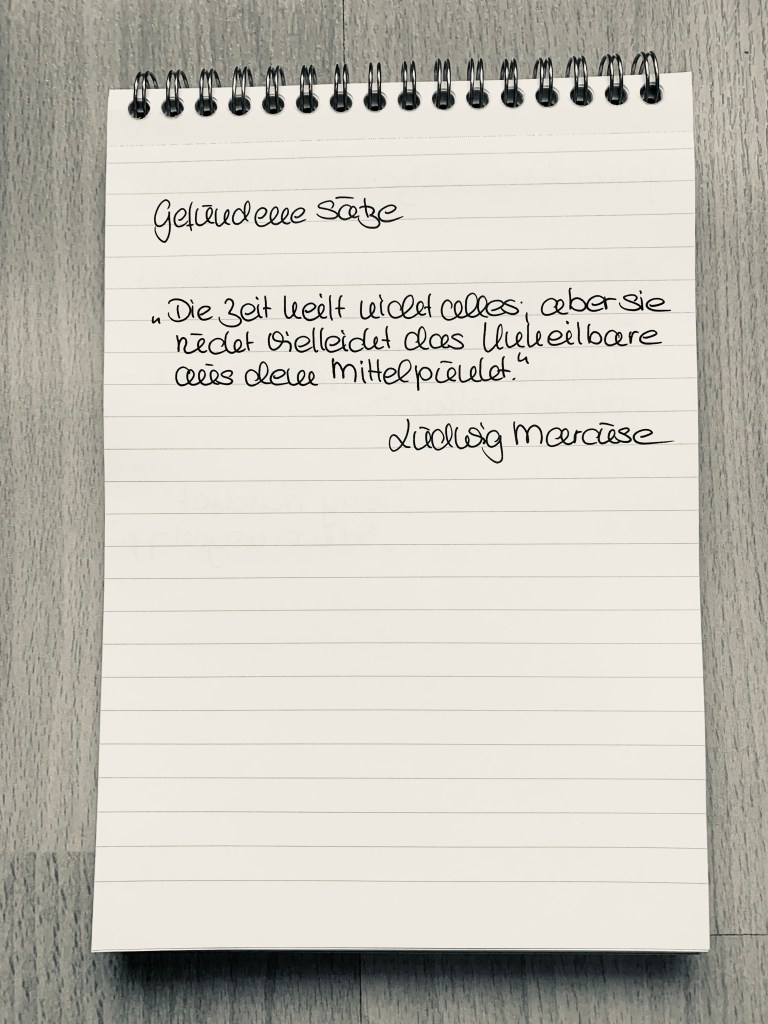 Gefundene Sätze
„Die Zeit heilt nicht alles; aber sie
rückt vielleicht das Unheilbare
aus dem Mittelpunkt.“
Ludwig Marcuse